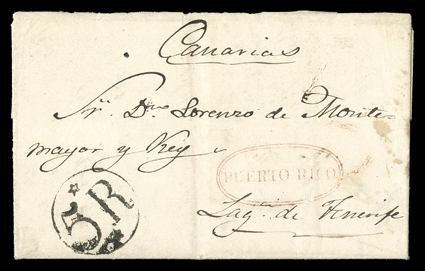 Canarias
Sr. Dn. Lorenzo de Monte-
mayor y Key
PUERTO RICO
5R
Lagª. de Tenerife